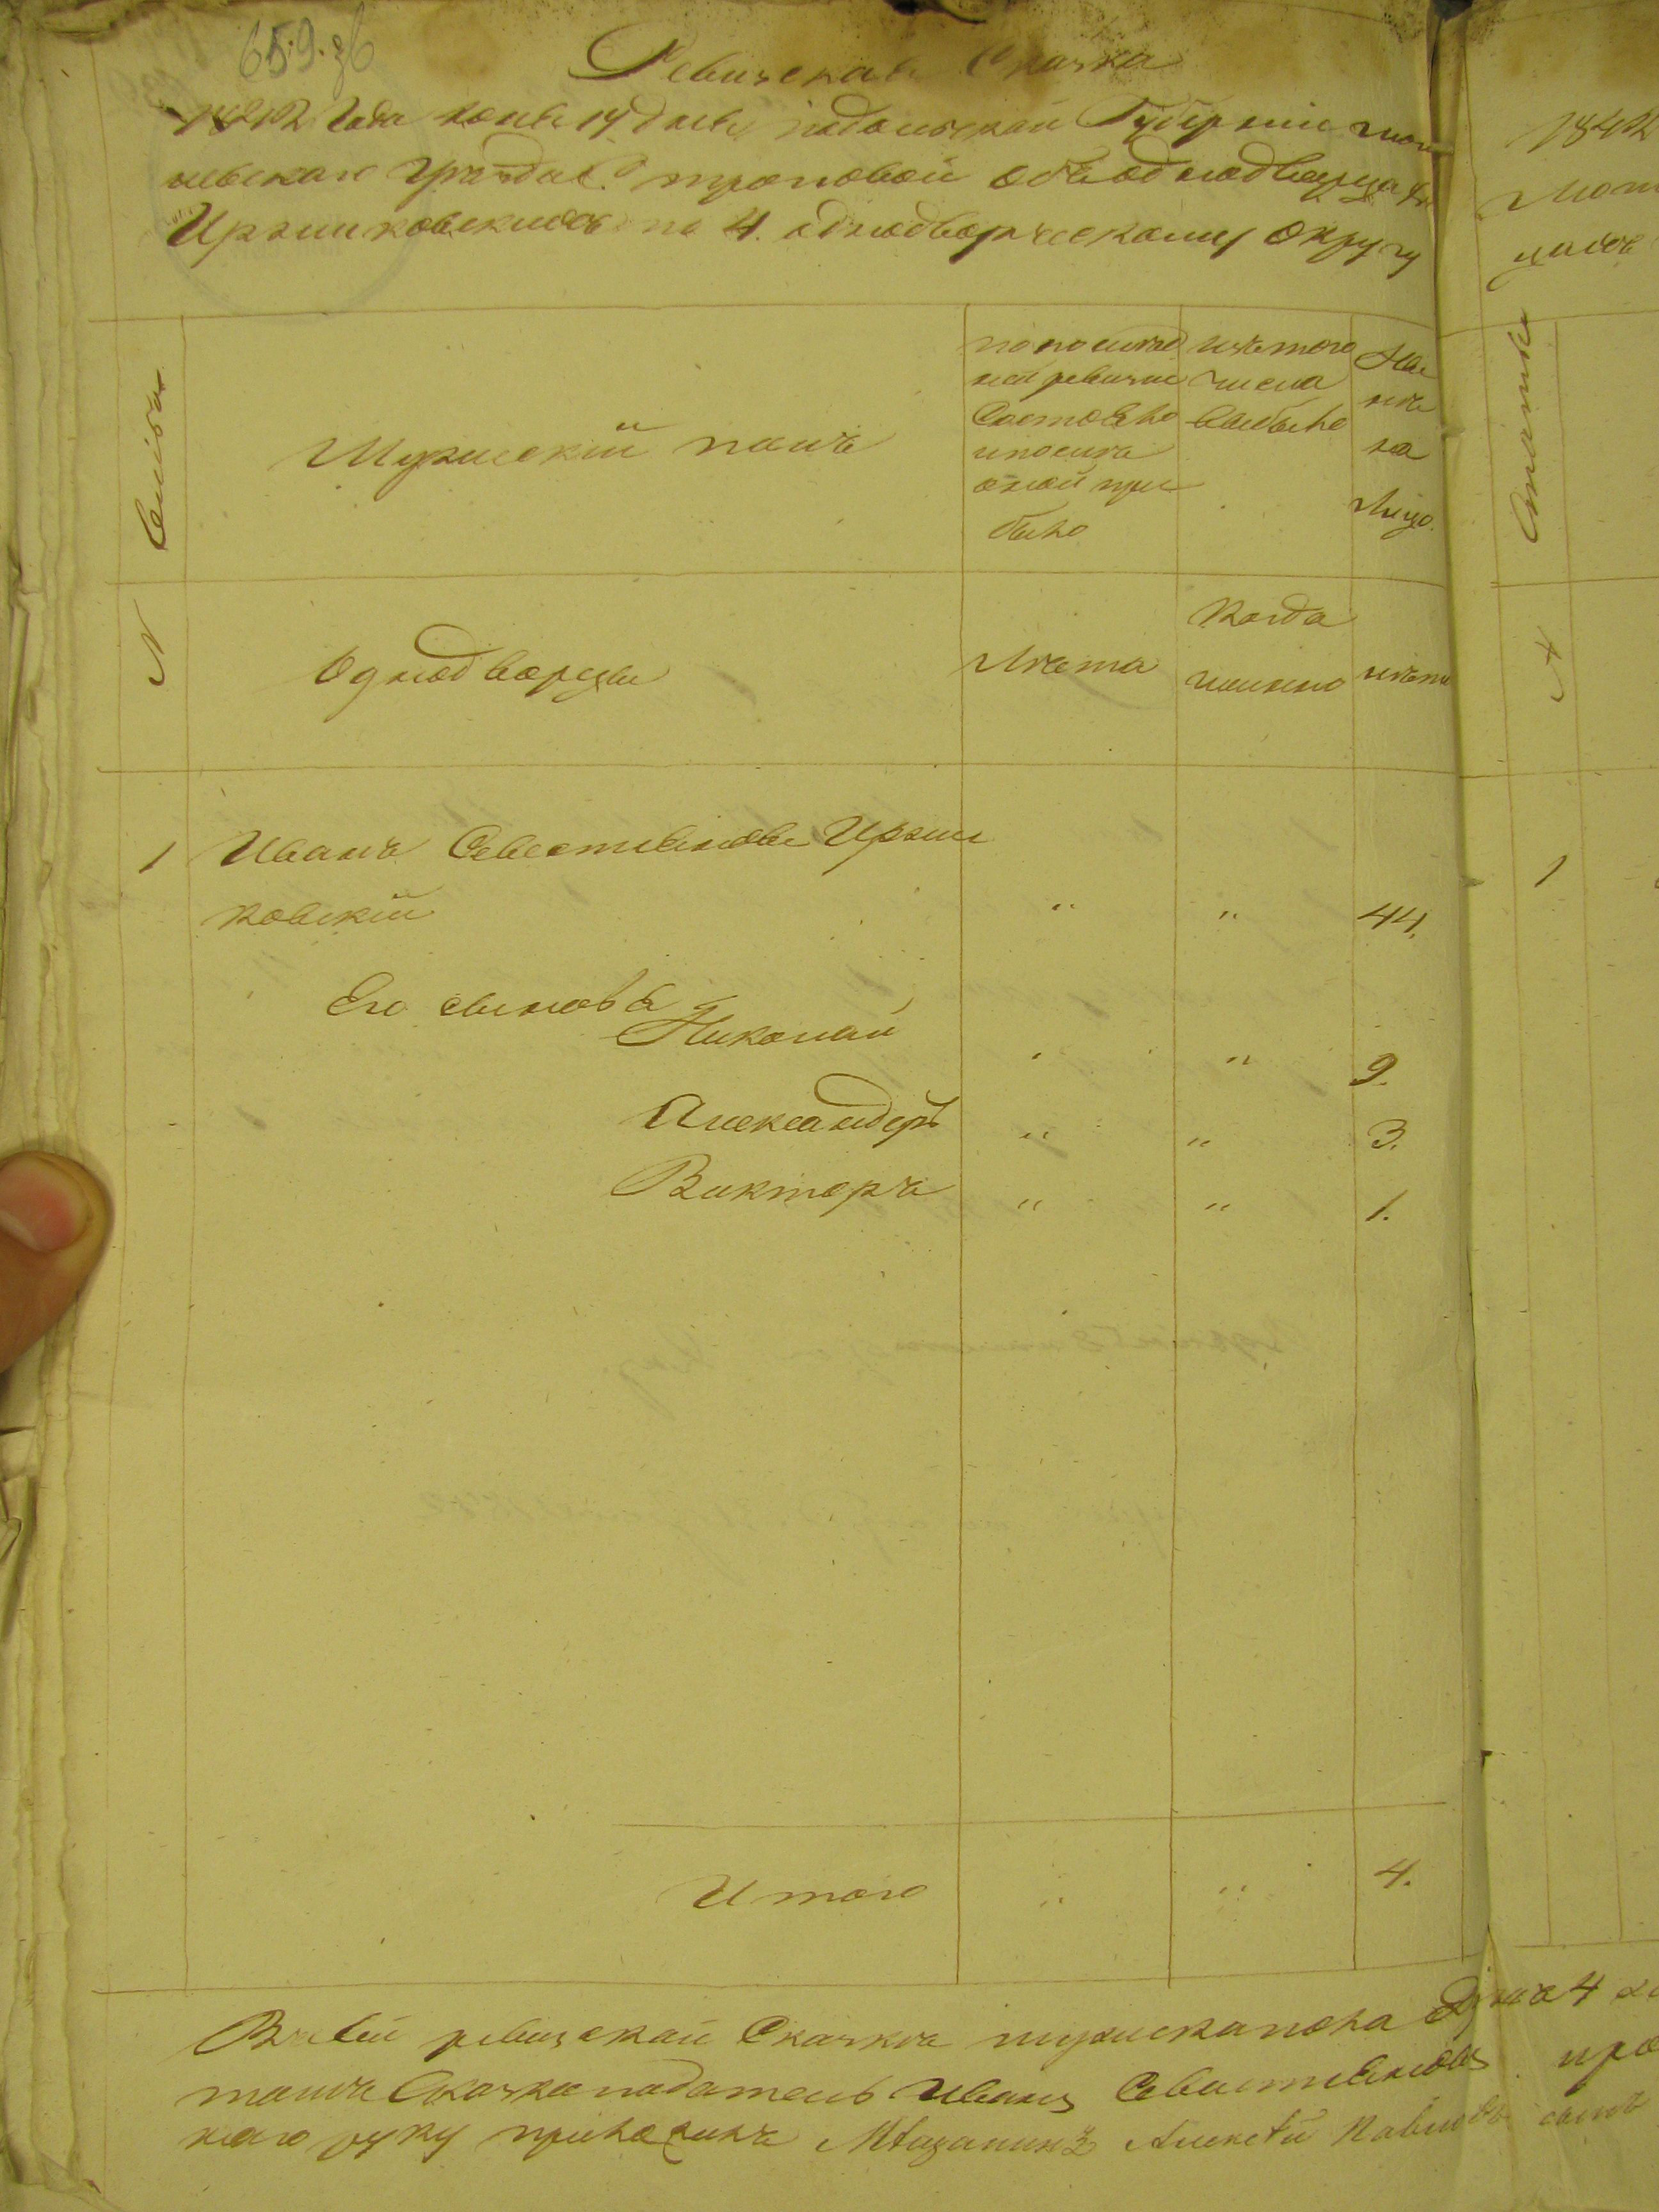 659. зв
Ревизская Сказка
1842 Года юня 14 дня подольской Губерніи мог
илевскаго уезда С. троповой объ однодворцахъ
Иржиковскихъ по 4. однодворческому округу
N Семiи
Мужескій полъ
по послед
ней ревизіи
Состояло
и после
оной при
было
изъ того
числа
выбыло
На
ли
цо
Лицо.
Однодворцы
Лета
Когда
имянно
лета
1 Иванъ Севестіяновъ Иржи
ковскій " " 44.
Его сыновья
Николай " " 9.
Александеръ " " 3.
Викторъ " " 1.
Итого " " 4.
Въ сей ревизской Сказке мужеска пола душъ 4
Сказкоподатель Иванъ Севастіяновъ
руку приложилъ Мещанинъ Алексей Павловъ сынъ
1842
1